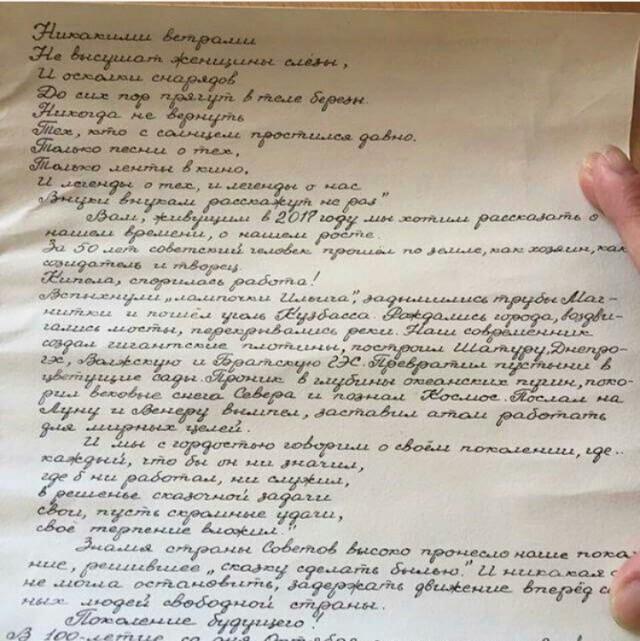 Никакими ветрами
Не высушат женщины слёзы,
И осколки снарядов
До сих пор прячут в теле березы.
Никогда не вернуть
Тех, кто с солнцем простился давно.
Только песни о тех,
Только ленты в кино,
И легенды о тех, и легенды о нас
Внуки внукам расскажут не раз"
Вам, живущим в 2017 году мы хотим рассказать о
нашем времени, о нашем росте.
За 50 лет советский человек прошёл по земле, как хозяин, как
созидатель и творец.
Кипела, спорилась работа!
Вспыхнули „лампочки Ильича", задымились трубы Маг-
нитки и пошёл уголь Кузбасса. Рождались города, воздви-
гались мосты, перекрывались реки. Наш современник
создал гигантские плотины, построил Шатуру, Днепро-
гэс, Волжскую и Братскую ГЭС. Превратил пустыни в
цветущие сады. Проник в глубины океанских пучин, поко-
рил вековые снега Севера и познал Космос. Послал на
Луну и Венеру вымпел, заставил атом работать
для мирных целей.
И мы с гордостью говорим о своём поколении, где..
каждый, что бы он ни значил,
где б ни работал, ни служил,
в решенье сказочной задачи
свои, пусть скромные удачи,
своё терпение вложил."
Знамя страны Советов высоко пронесло наше поко
ние, решившее „сказку сделать былью." И никакая с
не могла остановить, задержать движение вперёд с
ных людей свободной страны.
Поколение будущего!
В 100-летие со дня Октября